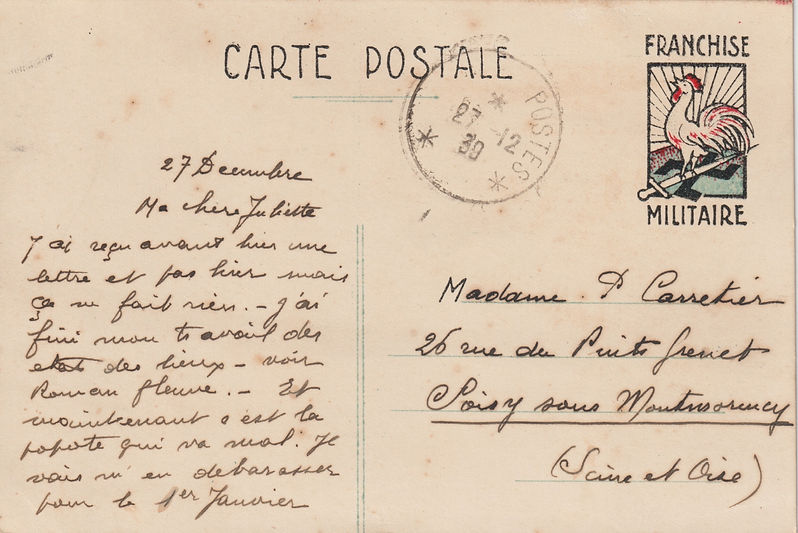 CARTE POSTALE
FRANCHISE
MILITAIRE
POSTES
27 -12
39
27 Decembre
Ma chere Juliette
J'ai reçu avant hier une
lettre et pas hier mais
ça ne fait rien. - J'ai
fini mon travail des
etats des lieux - voir
Roman fleuve. - Et
maintenant c'est la
popote qui va mal. Je
vais m'en debarasser
pour le 1er Janvier
Madame P Carretier
26 rue du Puits Grenet
Soisy sous Montmorency
(Seine et Oise)